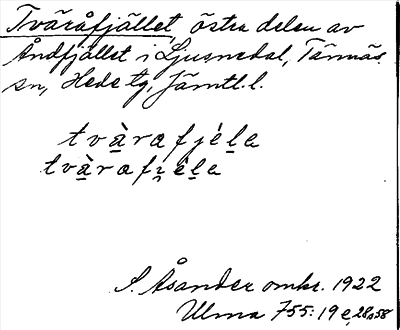 Tväråfjället, östra delen av
Åndfjället i Ljusnedal, Tännäs
sn, Hede tg, Jämtl. l.
tvàrafjéla
tvàrafi̯éla
S. Åsander omkr. 1922
Ulma 755:19 e, 28, 58